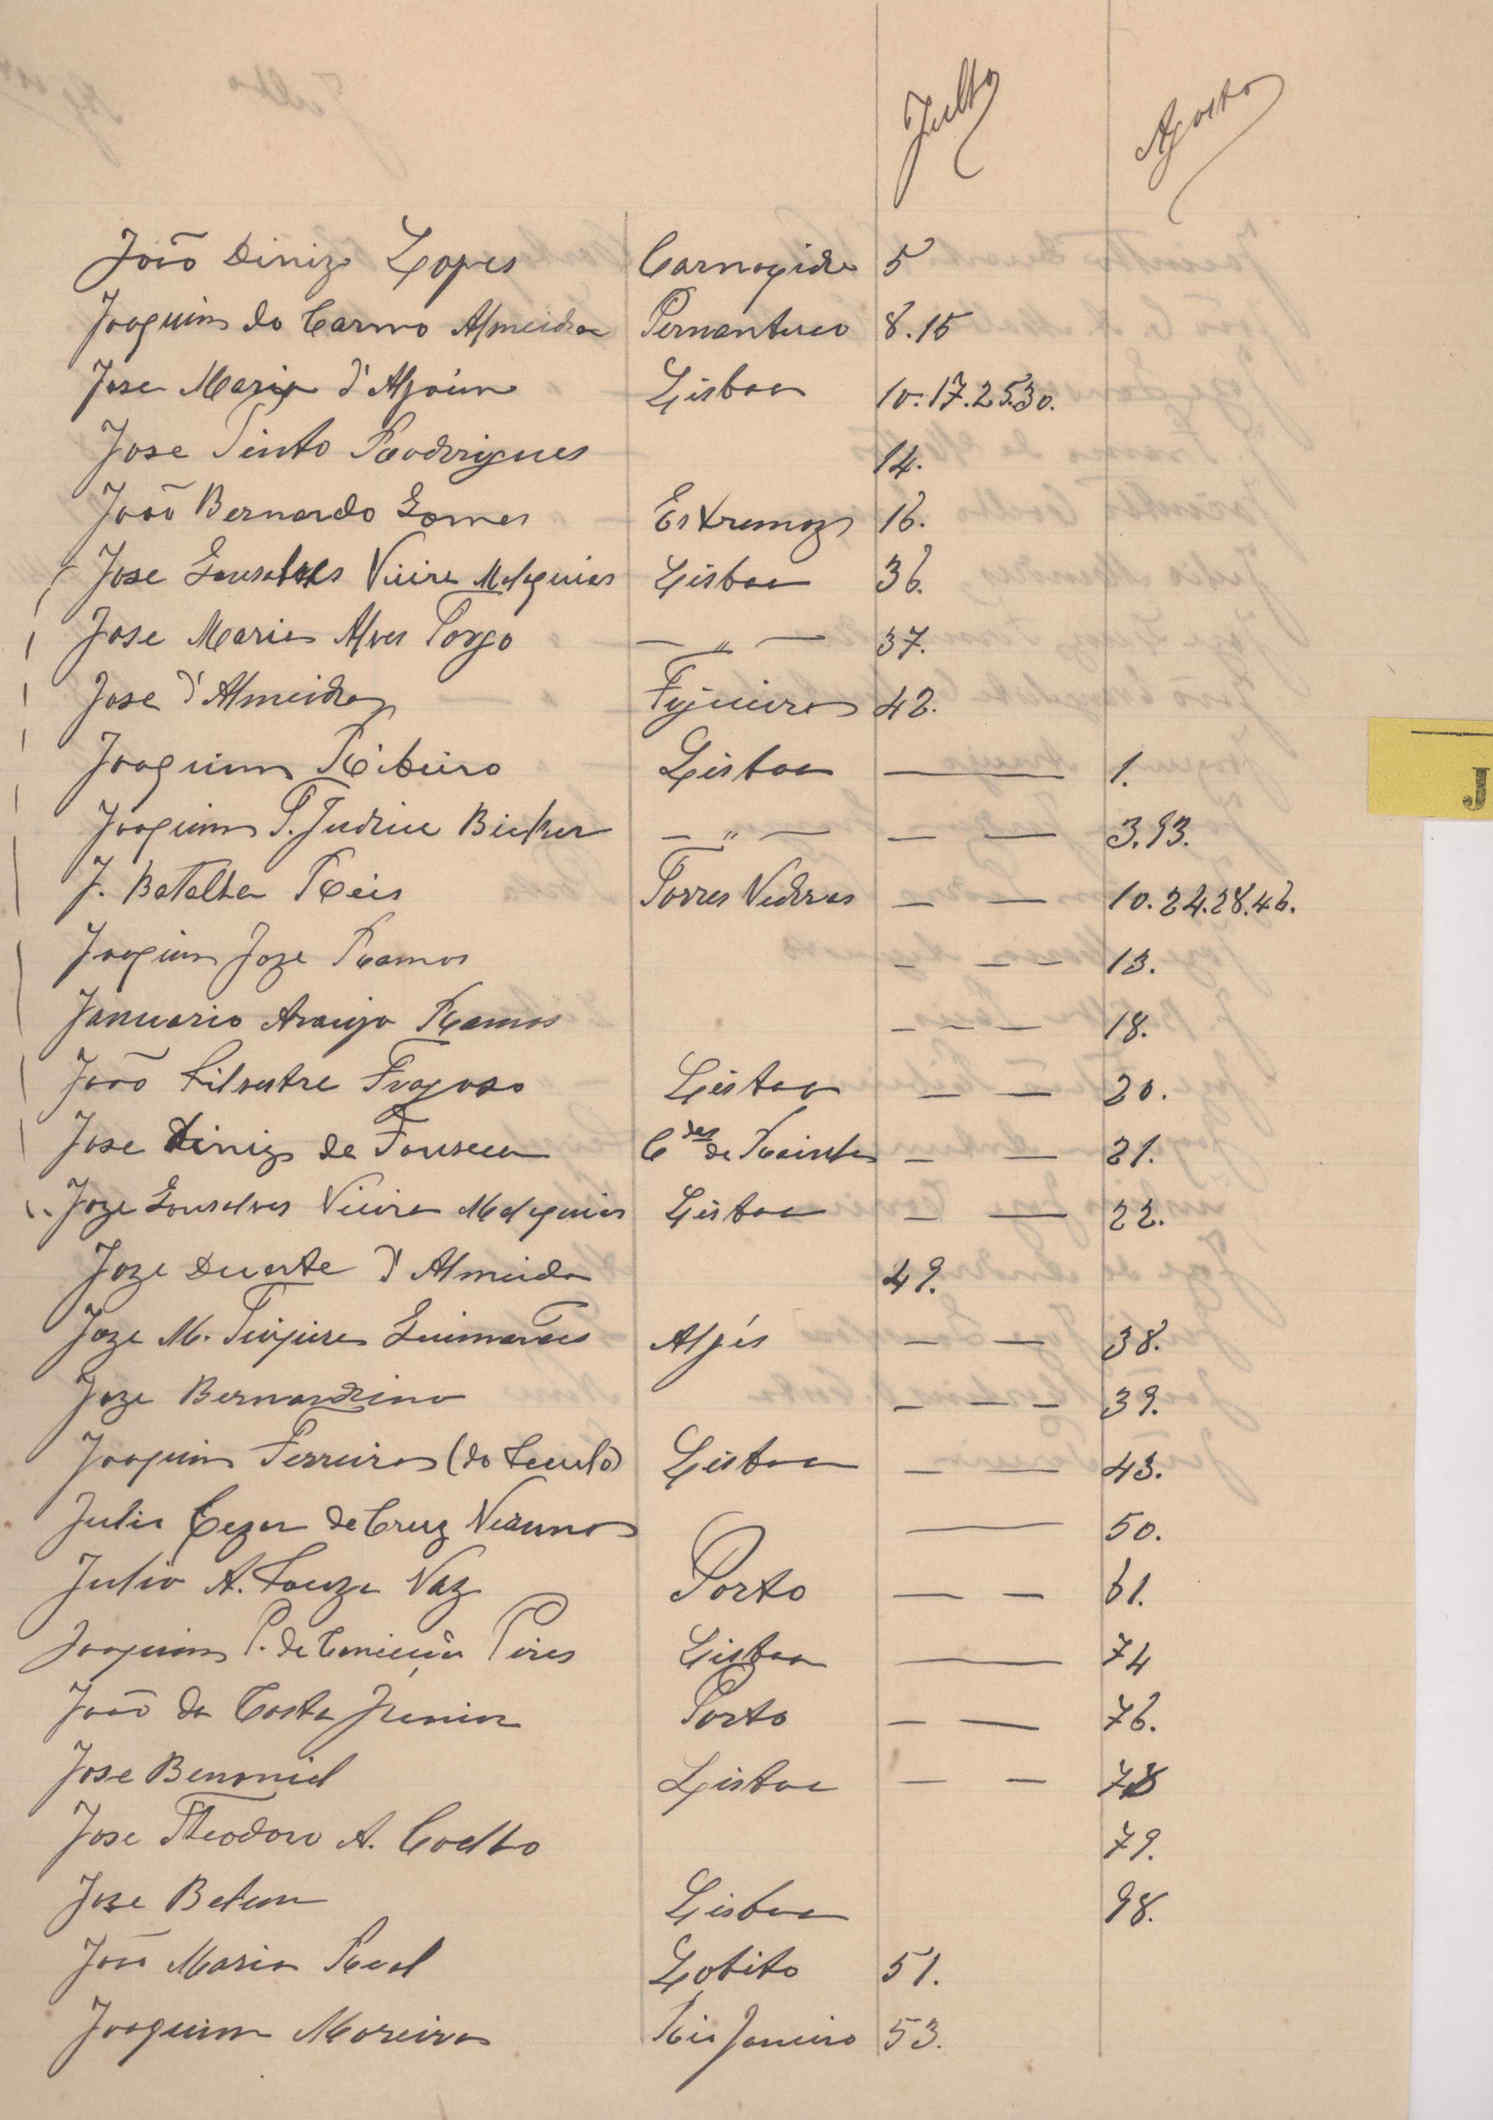 Julho Agosto
João Diniz Lopes Carnaxide 5
Joaquim do Carmo Almeida Pernambuco 8.15
Jose Maria d'Alpoim Lisboa 10.17.25.30.
Jose Pinto Rodrigues 14.
João Bernardo Gomes Extremoz 16.
Jose Gonsalves Vieira Melquias Lisboa 36.
Jose Maria Alves Torgo — " — 37.
Jose d'Almeida Figueira 42.
Joaquim Ribeiro Lisboa — 1.
Joaquim P. Judice Bicker — " — — — 3.93.
J. Batalha Reis Torres Vedras — — 10.24.28.46.
Joaquim Joze Ramos — — — 13.
Januario Araujo Ramos — — — 18.
João Silvestre Fragoso Lisboa — — 20.
Jose Diniz da Fonseca C das da Rainha — — 21.
Joze Gonsalves Vieira Melquias Lisboa — — 22.
Joze Duarte d'Almeida 49.
Joze M. Teixeira Guimarães Algés — — 38.
Joze Bernardino — — — 39.
Joaquim Ferreira (do Seculo) Lisboa — — 43.
Julio Cezar da Cruz Vianna — 50.
Julio A. Souza Vaz Porto — — 61.
Joaquim P. da Conceição Pires Lisboa — 74
João da Costa Junior Porto — — 76.
Jose Benoniel Lisboa — — 78
Jose Theodoro A. Coelho 79.
Jose Lisboa 98.
João Maria Real Lobito 51.
Joaquim Moreira Rio Janeiro 53.
J